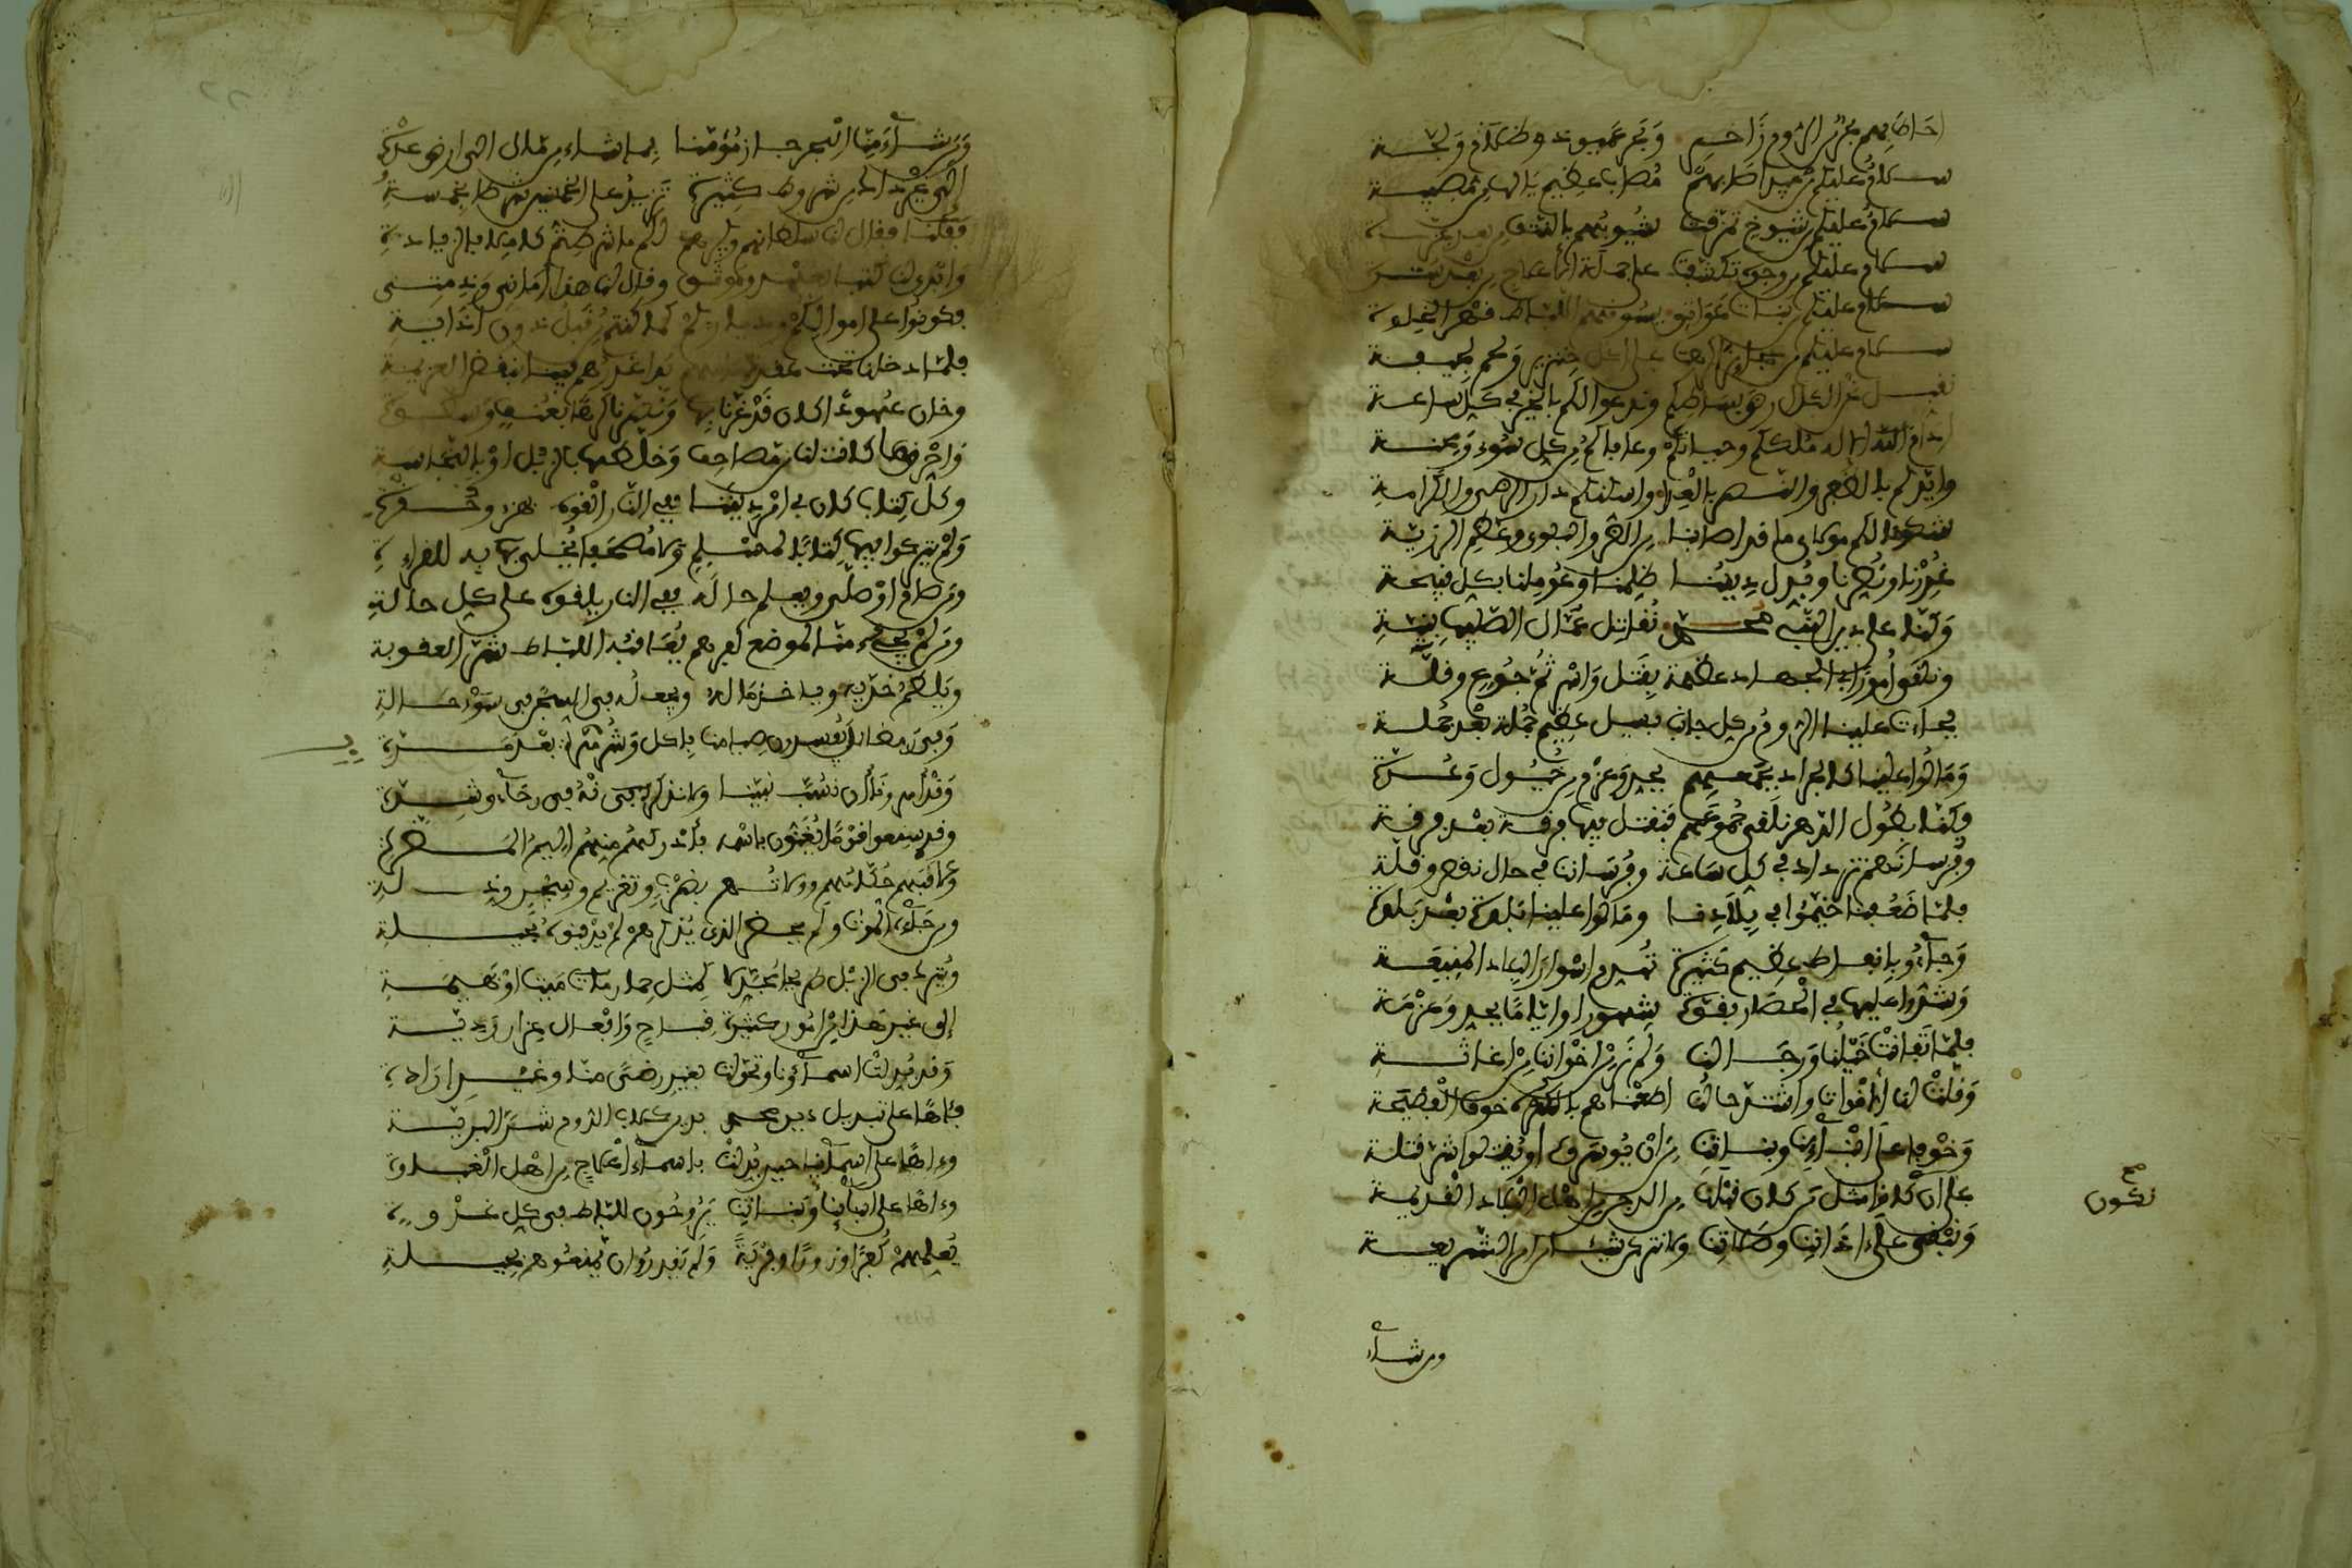 احاط بهم بحر من الروم زاخر وبحر عميق ذو ظلام ولجة
سلام عليكم من عبيد اصابهم مصاب عظيم يا لها من مصيبة
سلام عليكم من شيوخ تمزقت شيوبهم بالنتف من بعد عزة
سلام عليكم من وجوه تكشفت على جملة الاعلاج من بعد سترة
سلام عليكم من بنات عواتق يسوقهم اللباط قهرا لخلوة
سلام عليكم من عجائز اكرهت على اكل خنزير ولحم لجيفة
نقبل نحن الكل ارض بساطكم وندعوا لكم بالخير في كل ساعة
ادام الاله ملككم وحياتكم وعافاكم من كل سوء ومحنة
وايدكم بالنصر والظفر بالعدا واسكنكم دار الرضى والكرامة
شكونا لكم مولاي ما قد اصابنا من الضر والبلوى وعظم الرزية
غدرنا ونصرنا وبدل ديننا ظلمنا وعوملنا بكل قبيحة
وكنا على دين النبي محمد نقاتل عمال الصليب بنية
ونلقى امورا في الجهاد عظيمة بقتل واسر ثم جوع وقلة
فجاءت علينا الروم من كل جانب بسيل عظيم جملة بعد جملة
ومالوا علينا كالجراد بجمعهم بجد وعزم من خيول وعدة
وكنا بطول الدهر نلقى جموعهم فنقتل فيها فرقة بعد فرقة
وفرسانهم تزداد في كل ساعة وفرساننا في حال نقص وقلة
فلما ضعفنا خيموا في بلادنا ومالوا علينا بلدة بعد بلدة
وجاءوا بانفاط عظيم كثيرة تهدم اسوار البلاد المنيعة
وشدوا عليها في الحصار بقوة شهورا واياما بجد وعزمة
فلما تفانت خيلنا ورجالنا ولم نر من اخواننا من اغاثة
وقلت لنا الاقوات واشتد حالنا اطعناهم بالكره خوف الفضيحة
وخوفا على ابنائنا وبناتنا من ان يوسروا او يقتلوا شر قتلة
على ان نكون مثل من كان قبلنا من الدجن من اهل البلاد القديمة
صح
نكون
ونبقى على اذاننا وصلاتنا ولا نتركن شيئا من امر الشريعة
ومن شاء
ومن شاء منا البحر جاز مؤمنا بما شاء من مال الى ارض عدوة
الى غير ذلك من شروط كثيرة تزيد على الخمسين شرطا بخمسة
فقلنا فقال لنا سلطانهم وكبيرهم لكم ما شرطتم كاملا بالزيادة
وابدى لنا كتبا بعهد وموثق وقال لنا هذا اماني وذمتي
فكونوا على اموالكم ودياركم كما كنتم من قبل دون اذاية
فلما دخلنا تحت عقد ذمامهم بدا غدرهم فينا بنقض العزيمة
وخان عهودا كان قد غرنا بها ونصرنا كرها بعنف وسطوة
واحرق ما كانت لنا من مصاحف وخلطها بالزبل او بالنجاسة
وكل كتاب كان في امر ديننا ففي النار القوه بهزء وحقرة
ولم يتركوا فيها كتابا لمسلم ولا مصحفا يخلى به للقراءة
ومن صام او صلى ويعلم حاله ففي النار يلقوه على كل حالة
ومن لم يجئ منا لموضع كفرهم يعاقبه اللباط شر العقوبة
ويلطم خديه وياخذ ماله ويجعله في السجن في سوء حالة
وفي رمضان يفسدون صيامنا باكل وشرب مرة بعد مرة
وقد امرونا ان نسب نبينا ولا نذكرنه في رخاء وشدة
وقد سمعوا قوما يغنون باسمه فادركهم منهم اليم المضرة
وعاقبهم حكامهم وولاتهم بضرب وتغريم وسجن وذلة
ومن جاءه الموت ولم يحضر الذي يذكرهم لم يدفنوه بحيلة
ويترك في زبل طريحا مجندلا كمثل حمار مات ميتا او بهيمة
الى غير هذا من امور كثيرة قباح وافعال غزار ردية
وقد بدلت اسماؤنا وتحولت بغير رضى منا وغير ارادة
فاها على تبديل دين محمد بدين كلاب الروم شر البرية
وءاها على اسمائنا حين بدلت باسماء اعلاج من اهل الغباوة
وءاها على ابنائنا وبناتنا يروحون للباط في كل غدوة
يعلمهم كفرا وزورا وفرية ولم يقدروا ان يمنعوهم بحيلة